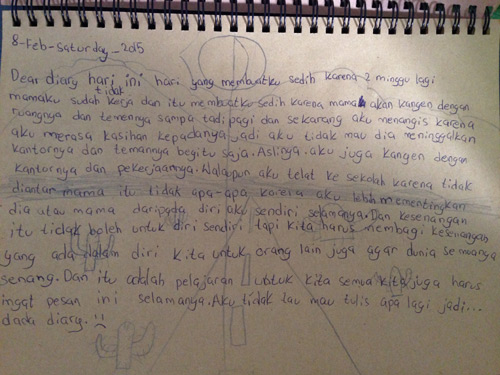 8-Feb-Saturday_2015
Dear diary hari ini hari yang membuatku sedih karena 2 minggu lagi
mamaku tidak sudah kerja dan itu membuatku sedih karena mama akan kangen dengan
ruangnya dan temennya sampa tadi pagi dan sekarang aku menangis karena
aku merasa kasihan kepadanya jadi aku tidak mau dia meninggalkan
kantornya dan temannya begitu saja. Aslinya. aku juga kangen dengan
kantornya dan pekerjaannya. Walaupun aku telat ke sekolah karena tidak
diantar mama itu tidak apa-apa karena aku lebih mementingkan
dia atau mama daripada diri aku sendiri selamanya. Dan kesenangan
itu tidak boleh untuk diri sendiri tapi kita harus membagi kesenangan
yang ada dalam diri kita untuk orang lain juga agar dunia semuanya
senang. Dan itu adalah pelajaran untuk kita semua kita juga harus
ingat pesan ini selamanya. Aku tidak tau mau tulis apa lagi jadi...
dada diary.